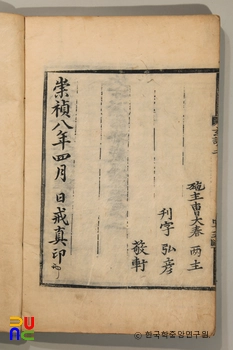 施主曹大春 兩主
刊字 弘彦
敬軒
崇禎八年四月 日戒真印
ⓒ 한국학중앙연구원